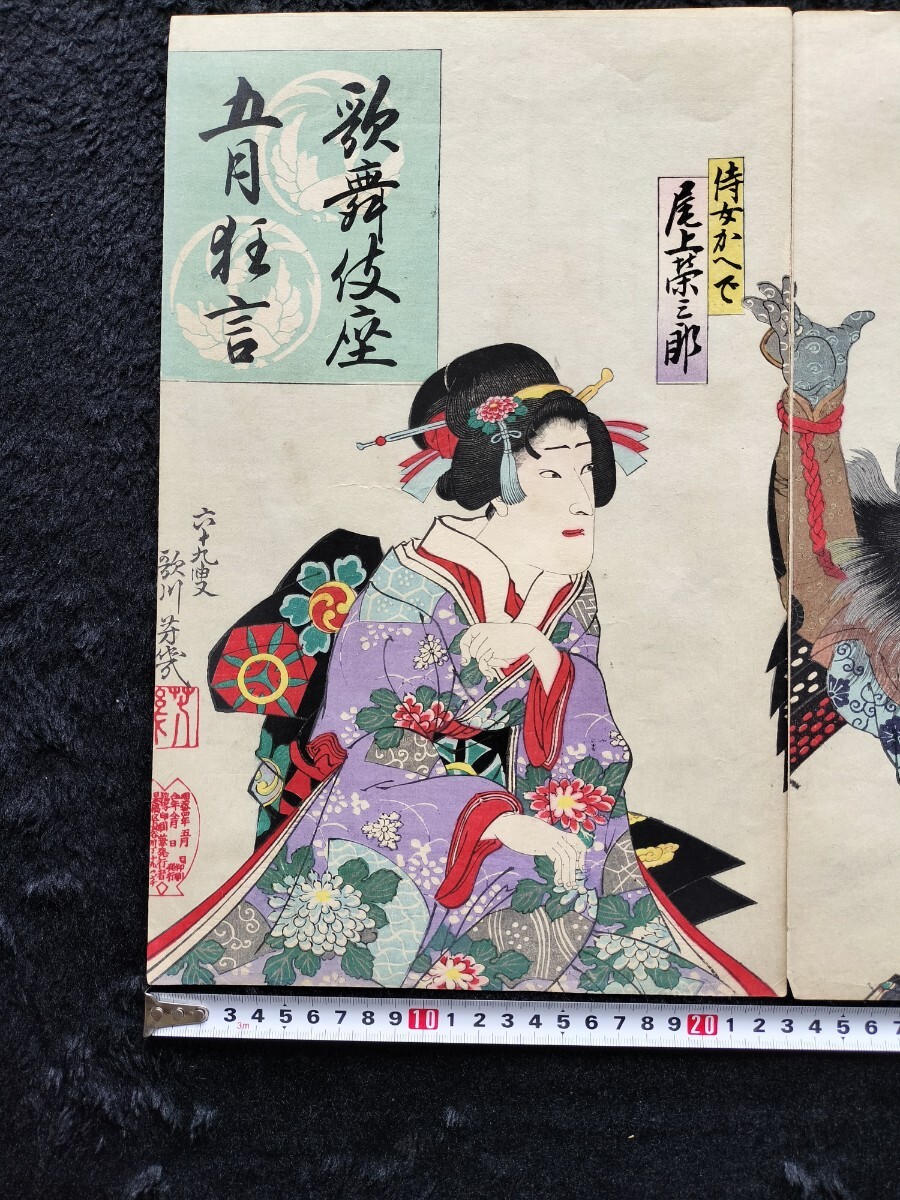 歌舞伎座
五月狂言
侍女かへで
尾上栄三郎
六十九叟
歌川芳幾
3 4 5 6 7 8 9 10 1 2 3 4 5 6 7 8 9 20 1 2 3 4 5 6 7
3m